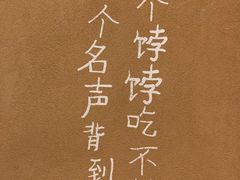 个饽饽吃不
个名声背到